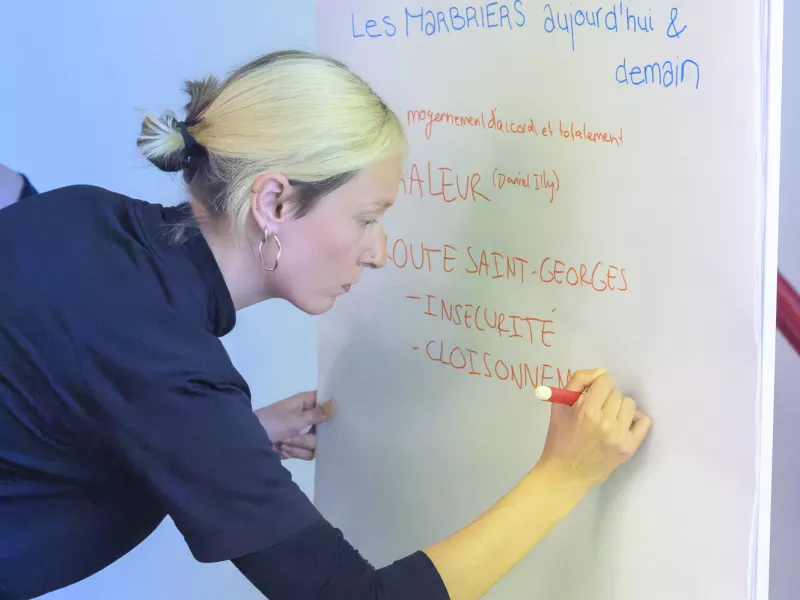 Les MARBRIERS aujourd'hui &
demain
moyennement d'accord et totalement
ALEUR (Daniel Illy)
OUTE SAINT-GEORGES
- INSECURITÉ
- CLOISONNEM